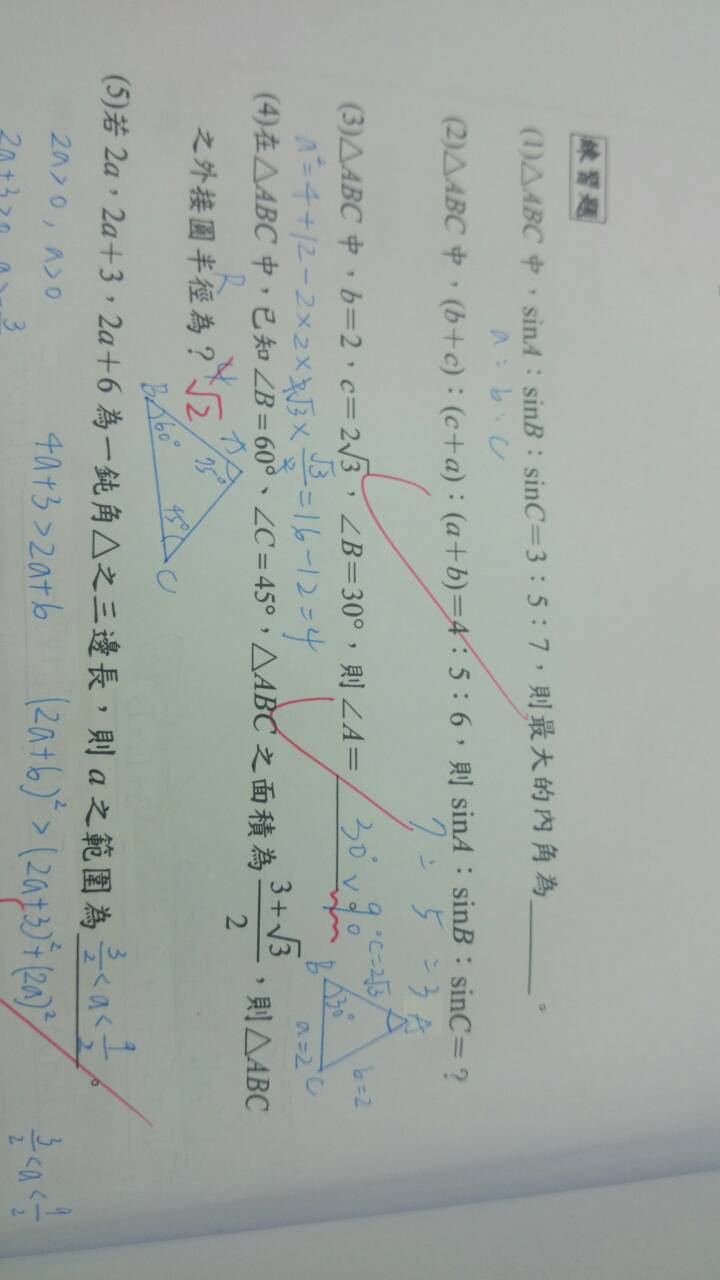 練習題
(1)△ABC 中，sinA：sinB：sinC=3：5：7，則最大的內角為______。
a：b：c
(2)△ABC 中，(b+c)：(c+a)：(a+b)=4：5：6，則 sinA：sinB：sinC=？
7：5：3
(3)△ABC 中，b=2，c=2√3，∠B=30°，則∠A=______
30° ∨ 90°
A
c=2√3
B 30°
b=2
a=2 C
a²=4+12-2×2×2√3×√3/2=16-12=4
(4)在△ABC 中，已知∠B=60°、∠C=45°，△ABC 之面積為 (3+√3)/2，則△ABC
之外接圓半徑為？
R
√2
A
75°
B 60°
45° C
(5)若 2a，2a+3，2a+6 為一鈍角△之三邊長，則 a 之範圍為______。
3/2<a<9/2
2a>0, a>0
4a+3>2a+6
(2a+6)²>(2a+3)²+(2a)²
3/2<a<9/2
2a+3>0